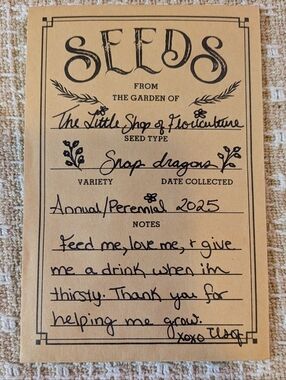 SEEDS
FROM
THE GARDEN OF
The Little Shop of Floriculture
SEED TYPE
Snap dragons
VARIETY DATE COLLECTED
Annual/Perennial 2025
NOTES
Feed me, love me, + give
me a drink when i'm
thirsty. Thank you for
helping me grow.
xoxo